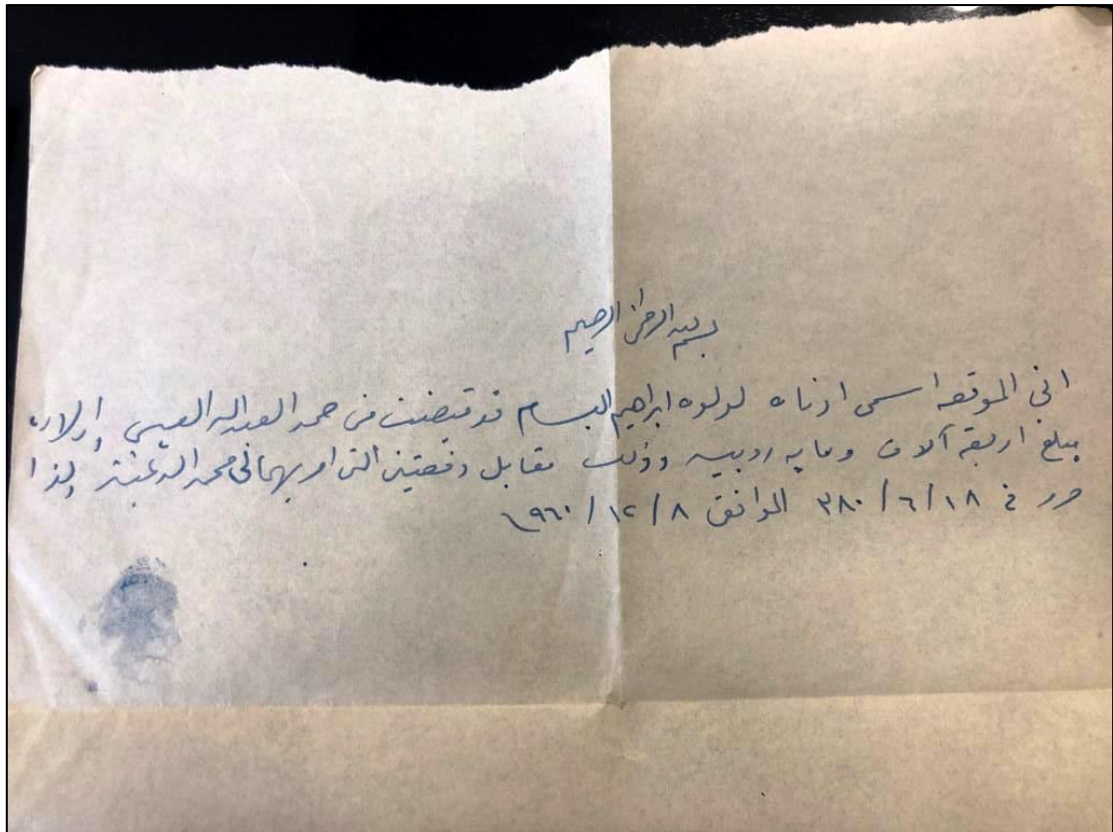 بسم الله الرحمن الرحيم
اني الموقعه اسمي ادناه لولوه ابراهيم البسام قد قبضت من حمد العبدالله العيسى
مبلغ اربعة آلاف ومايه روبيه وذلك مقابل التي محمد ولذا
حرر في ١٨/٦/٣٨٠ الموافق ٨/١٢/٩٦٠